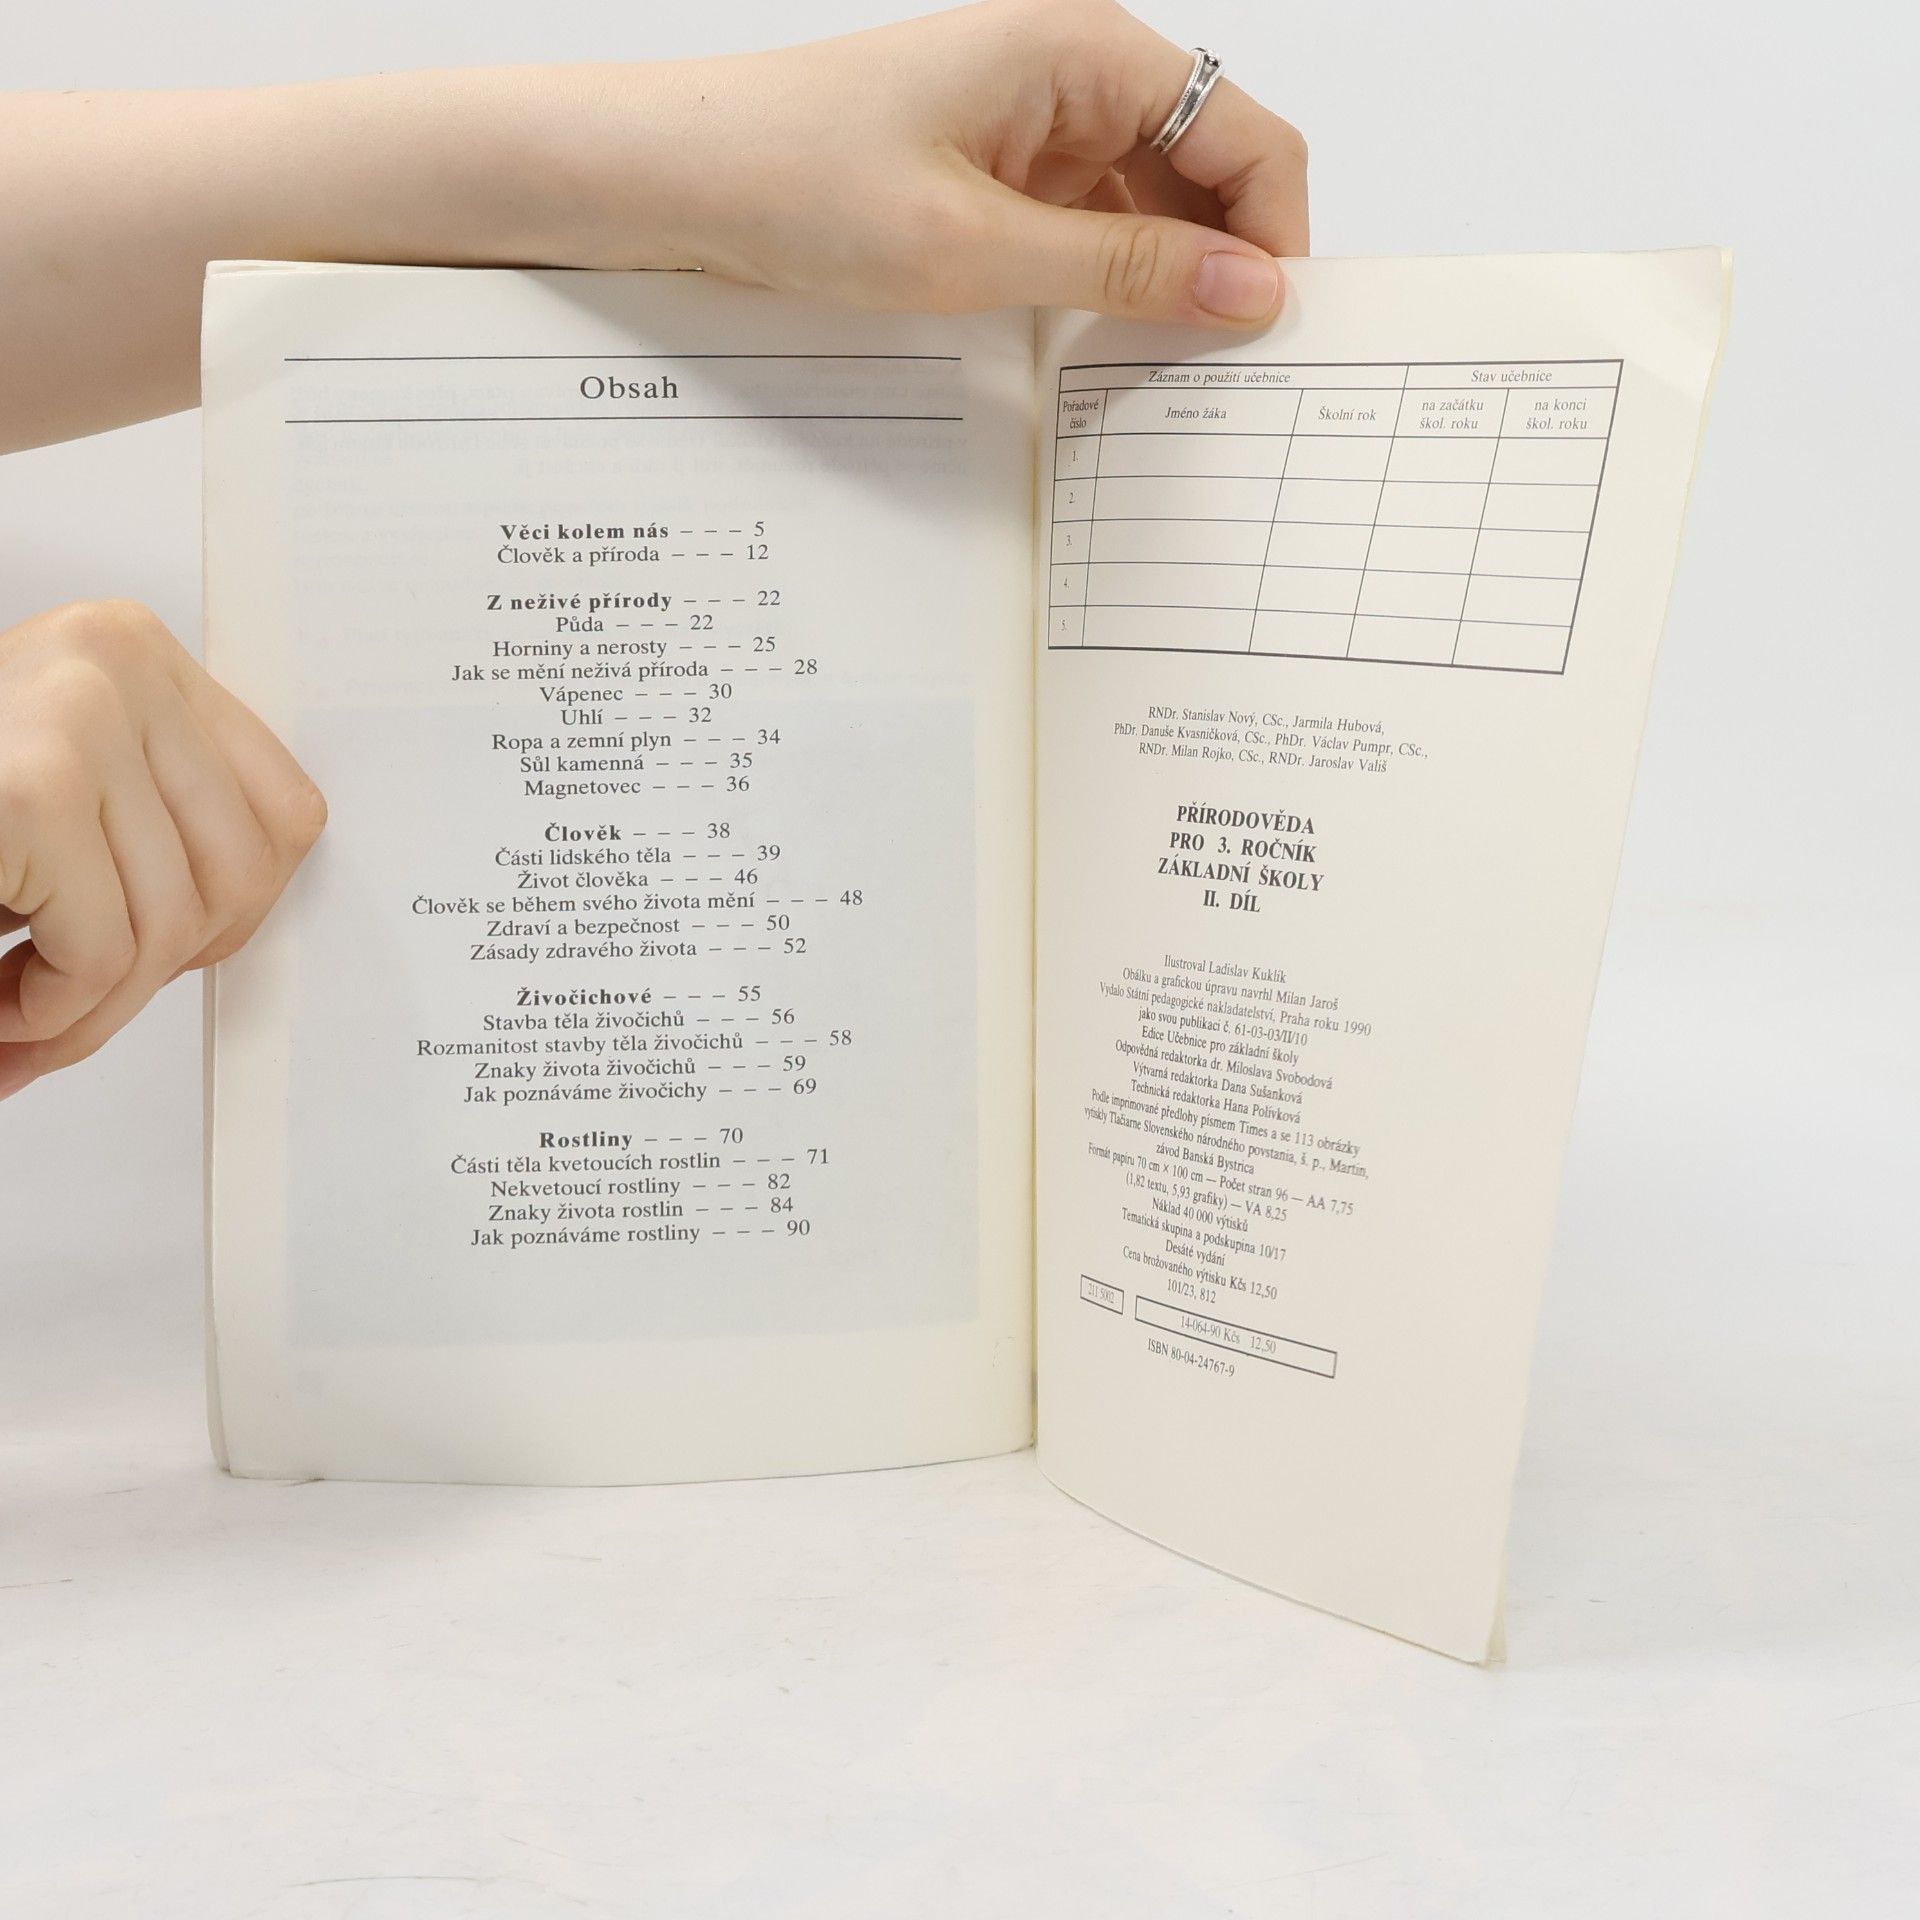 Obsah
Věci kolem nás – – – 5
Člověk a příroda – – – 12
Z neživé přírody – – – 22
Půda – – – 22
Horniny a nerosty – – – 25
Jak se mění neživá příroda – – – 28
Vápenec – – – 30
Uhlí – – – 32
Ropa a zemní plyn – – – 34
Sůl kamenná – – – 35
Magnetovec – – – 36
Člověk – – – 38
Části lidského těla – – – 39
Život člověka – – – 46
Člověk se během svého života mění – – – 48
Zdraví a bezpečnost – – – 50
Zásady zdravého života – – – 52
Živočichové – – – 55
Stavba těla živočichů – – – 56
Rozmanitost stavby těla živočichů – – – 58
Znaky života živočichů – – – 59
Jak poznáváme živočichy – – – 69
Rostliny – – – 70
Části těla kvetoucích rostlin – – – 71
Nekvetoucí rostliny – – – 82
Znaky života rostlin – – – 84
Jak poznáváme rostliny – – – 90
Záznam o použití učebnice Stav učebnice
Pořadové číslo Jméno žáka Školní rok na začátku škol. roku na konci škol. roku
1.
2.
3.
4.
5.
RNDr. Stanislav Nový, CSc., Jarmila Hubová,
PhDr. Danuše Kvasničková, CSc., PhDr. Václav Pumpr, CSc.,
RNDr. Milan Rojko, CSc., RNDr. Jaroslav Vališ
PŘÍRODOVĚDA
PRO 3. ROČNÍK
ZÁKLADNÍ ŠKOLY
II. DÍL
Ilustroval Ladislav Kuklík
Obálku a grafickou úpravu navrhl Milan Jaroš
Vydalo Státní pedagogické nakladatelství, Praha roku 1990
jako svou publikaci č. 61-03-03/II/10
Edice Učebnice pro základní školy
Odpovědná redaktorka dr. Miloslava Svobodová
Výtvarná redaktorka Dana Sušanková
Technická redaktorka Hana Polívková
Podle imprimované předlohy písmem Times a se 113 obrázky
vytiskly Tlačiarne Slovenského národného povstania, š. p., Martin,
závod Banská Bystrica
Formát papíru 70 cm × 100 cm — Počet stran 96 — AA 7,75
(1,82 textu, 5,93 grafiky) — VA 8,25
Náklad 40 000 výtisků
Tematická skupina a podskupina 10/17
Desáté vydání
Cena brožovaného výtisku Kčs 12,50
101/23, 812
211 5002
14-064-90 Kčs 12,50
ISBN 80-04-24767-9